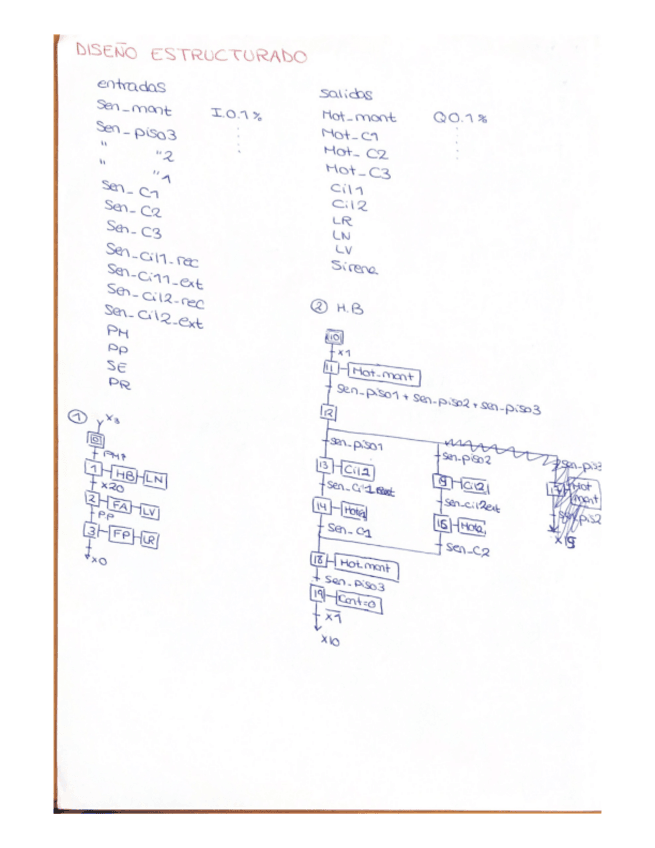 DISEÑO ESTRUCTURADO
entradas
Sen_mont I0.1%
Sen_piso3
" "2
" "1
Sen_C1
Sen_C2
Sen_C3
Sen_Cil1_rec
Sen_Cil1_ext
Sen_Cil2_rec
Sen_Cil2_ext
PM
PP
SE
PR
salidas
Mot_mont Q0.1%
Mot_C1
Mot_C2
Mot_C3
Cil1
Cil2
LR
LN
LV
Sirena
① X3
0
1 HB LN
X20
2 FA LV
PP
3 FP LR
X0
② H.B
10
X1
11 Mot_mont
Sen_piso1 + Sen_piso2 + Sen_piso3
12
Sen_piso1 Sen_piso2
13 Cil2 Cil2
Sen_cil2ext
14 15
Sen_C1 Sen_C2
18 Mot.mont
Sen_Piso3
19 Cont=0
X1
X10